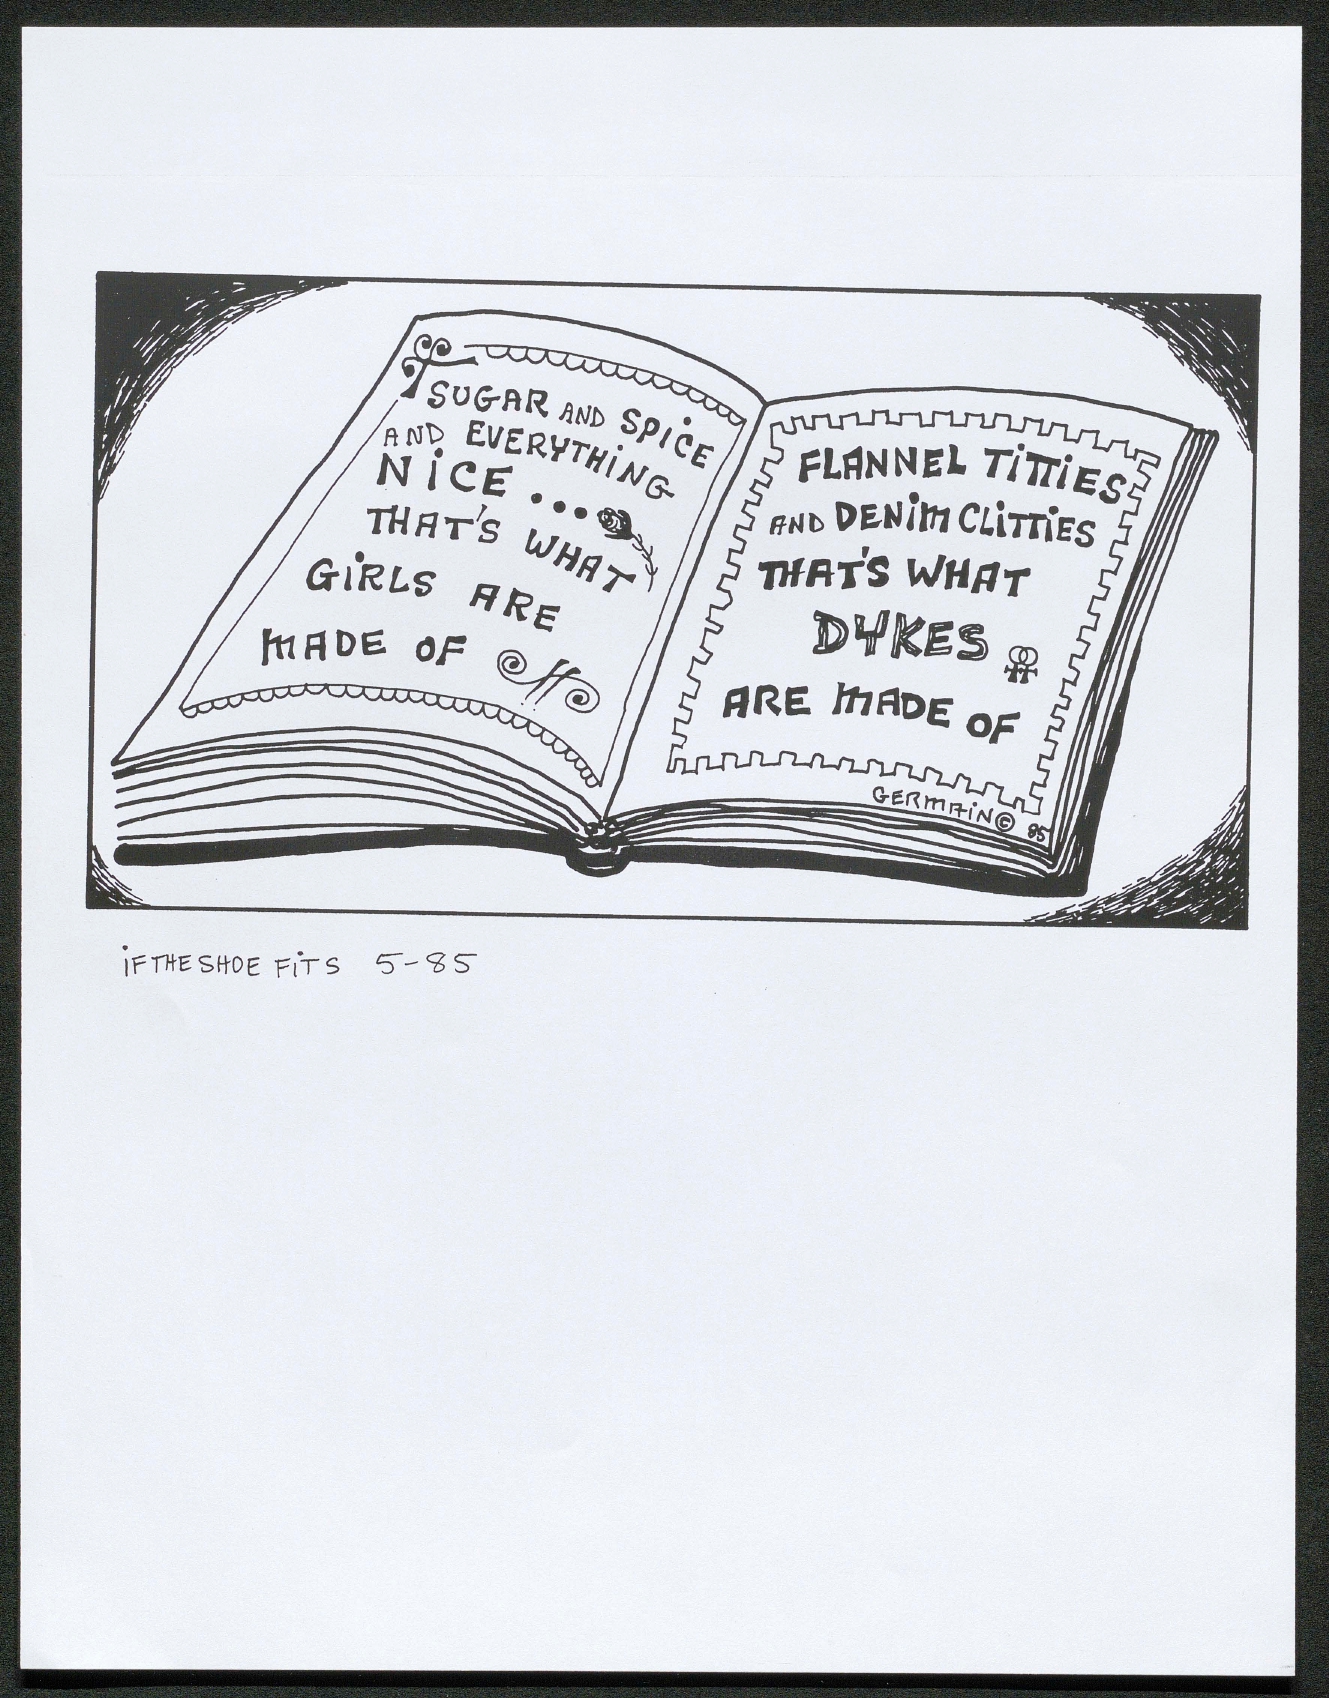 SUGAR AND SPICE
AND EVERYTHING
NICE...
THAT'S WHAT
GIRLS ARE
MADE OF
FLANNEL TITTIES
AND DENIM CLITTIES
THAT'S WHAT
DYKES
ARE MADE OF
GERMAIN © 85
IF THE SHOE FITS 5-85